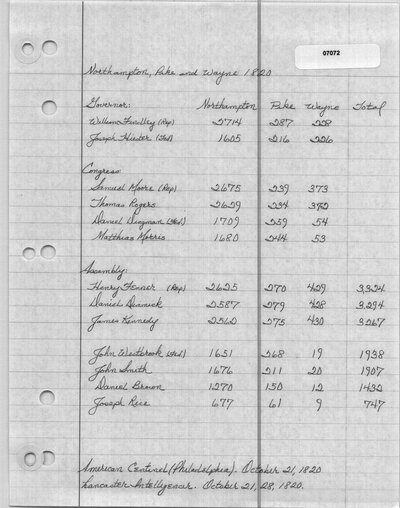 07072
Northampton, Pike and Wayne 1820
Governor: Northampton Pike Wayne Total
William Findley (Rep) 2714 287 228
Joseph Hiester (Fed) 1605 216 226
Congress:
Samuel Moore (Rep) 2675 239 373
Thomas Rogers 2629 234 392
Daniel Dingman (Fed) 1709 259 54
Matthias Morris 1680 244 53
Assembly:
Henry Fenner (Rep) 2625 270 429 3324
Daniel 2587 279 428 3294
James Kennedy 2562 275 430 3267
John Westbrook (Fed) 1651 268 19 1938
John Smith 1676 211 20 1907
Daniel Brown 1270 150 12 1432
Joseph Rice 677 61 9 747
American Centinel (Philadelphia). October 21, 1820
Lancaster Intelligencer. October 21, 28, 1820.